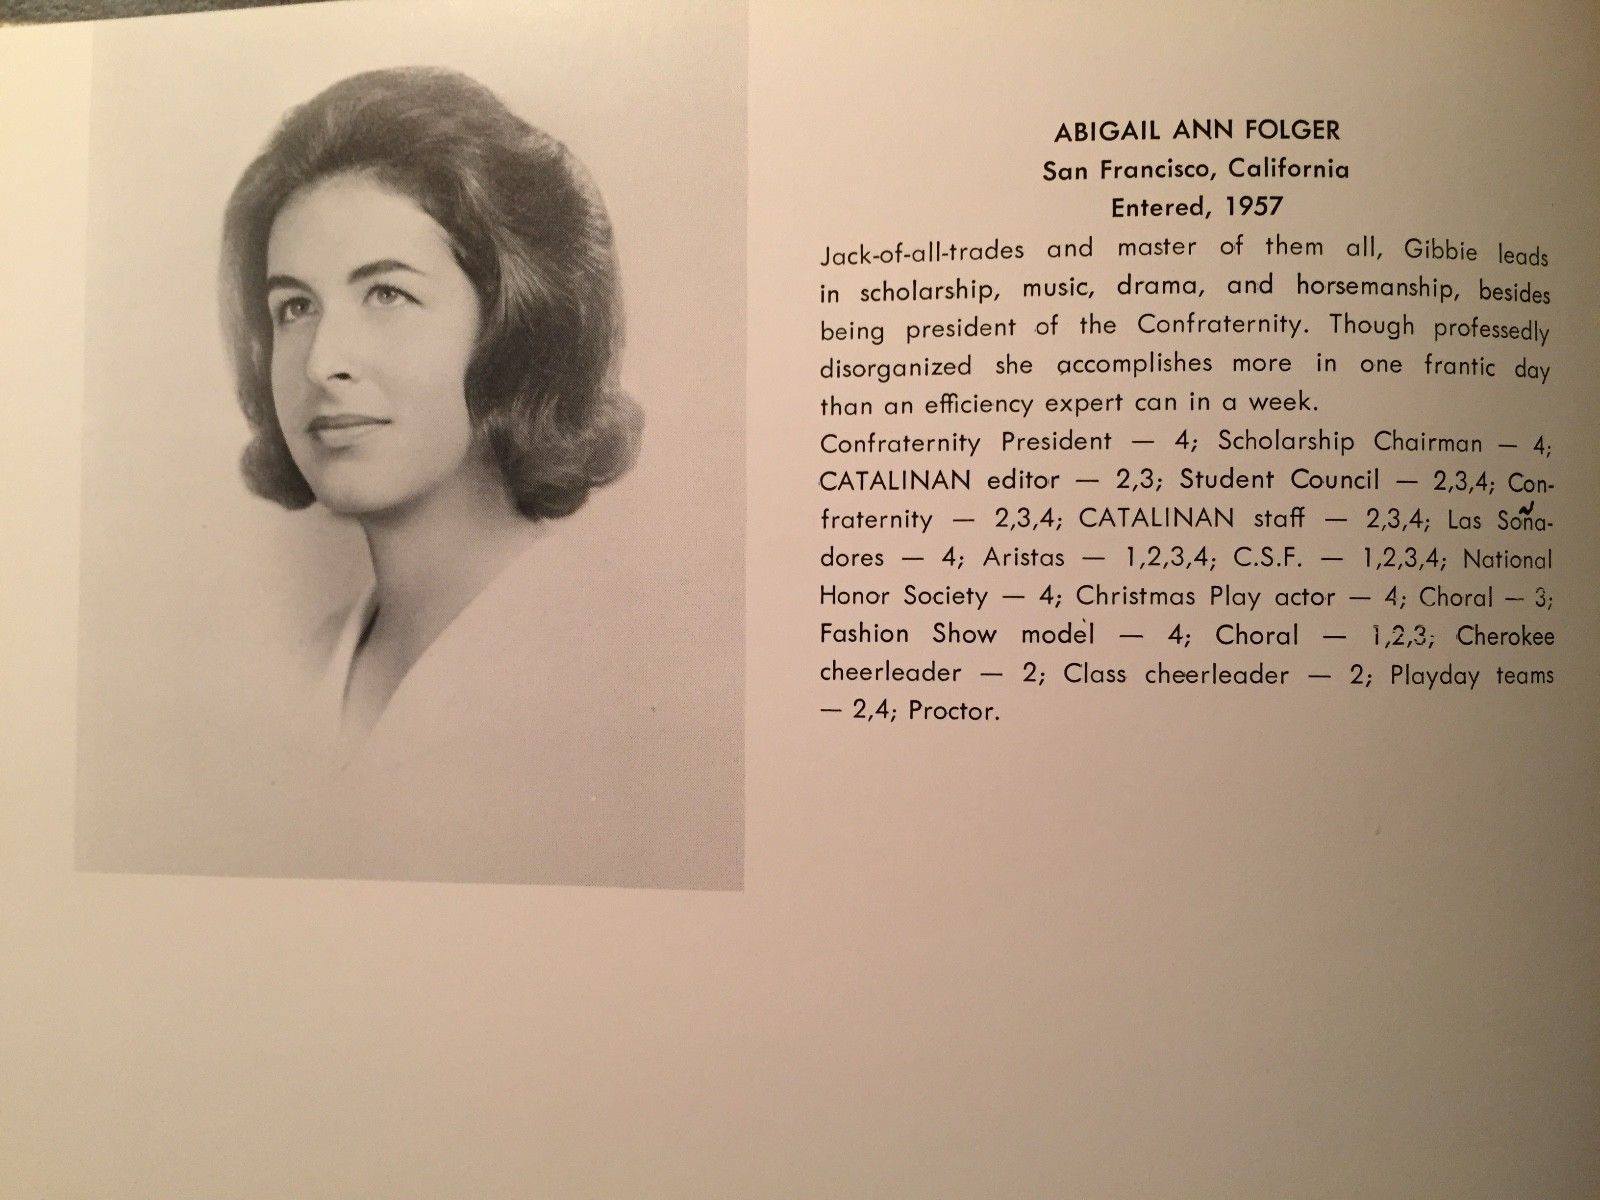 ABIGAIL ANN FOLGER
San Francisco, California
Entered, 1957
Jack-of-all-trades and master of them all, Gibbie leads
in scholarship, music, drama, and horsemanship, besides
being president of the Confraternity. Though professedly
disorganized she accomplishes more in one frantic day
than an efficiency expert can in a week.
Confraternity President — 4; Scholarship Chairman — 4;
CATALINAN editor — 2,3; Student Council — 2,3,4; Con-
fraternity — 2,3,4; CATALINAN staff — 2,3,4; Las Soña-
dores — 4; Aristas — 1,2,3,4; C.S.F. — 1,2,3,4; National
Honor Society — 4; Christmas Play actor — 4; Choral — 3;
Fashion Show model — 4; Choral — 1,2,3; Cherokee
cheerleader — 2; Class cheerleader — 2; Playday teams
— 2,4; Proctor.